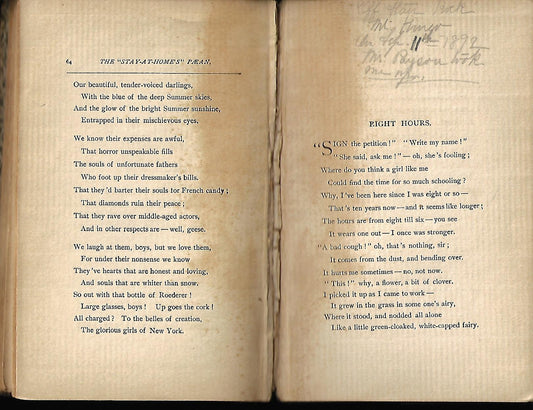 64 THE "STAY-AT-HOME'S" PÆAN.
Our beautiful, tender-voiced darlings,
With the blue of the deep Summer skies,
And the glow of the bright Summer sunshine,
Entrapped in their mischievous eyes.
We know their expenses are awful,
That horror unspeakable fills
The souls of unfortunate fathers
Who foot up their dressmaker's bills.
That they'd barter their souls for French candy;
That diamonds ruin their peace;
That they rave over middle-aged actors,
And in other respects are — well, geese.
We laugh at them, boys, but we love them,
For under their nonsense we know
They've hearts that are honest and loving,
And souls that are whiter than snow.
So out with that bottle of Roederer!
Large glasses, boys! Up goes the cork!
All charged? To the belles of creation,
The glorious girls of New York.
Rock
Mt.
11th 1892
Mr. Bryson took
me up.
EIGHT HOURS.
"SIGN the petition!" "Write my name!"
"She said, ask me!" — oh, she's fooling;
Where do you think a girl like me
Could find the time for so much schooling?
Why, I've been here since I was eight or so —
That's ten years now — and it seems like longer;
The hours are from eight till six — you see
It wears one out — I once was stronger.
"A bad cough!" oh, that's nothing, sir;
It comes from the dust, and bending over.
It hurts me sometimes — no, not now.
"This!" why, a flower, a bit of clover.
I picked it up as I came to work —
It grew in the grass in some one's airy,
Where it stood, and nodded all alone
Like a little green-cloaked, white-capped fairy.